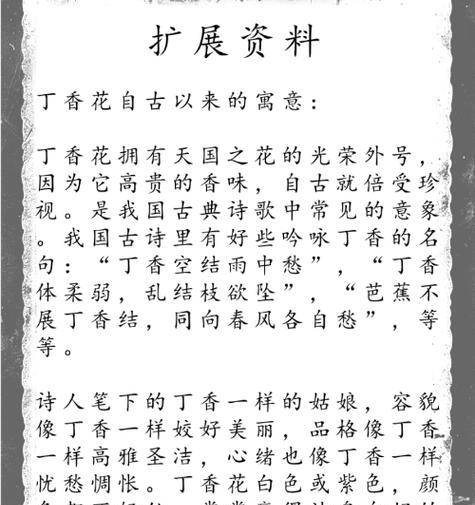 扩展资料
丁香花自古以来的寓意：
丁香花拥有天国之花的光荣外号，
因为它高贵的香味，自古就倍受珍
视。是我国古典诗歌中常见的意象
。我国古诗里有好些吟咏丁香的名
句：“丁香空结雨中愁”，“丁香
体柔弱，乱结枝欲坠”，“芭蕉不
展丁香结，同向春风各自愁”，等
等。
诗人笔下的丁香一样的姑娘，容貌
像丁香一样姣好美丽，品格像丁香
一样高雅圣洁，心绪也像丁香一样
忧愁惆怅。丁香花白色或紫色，颜